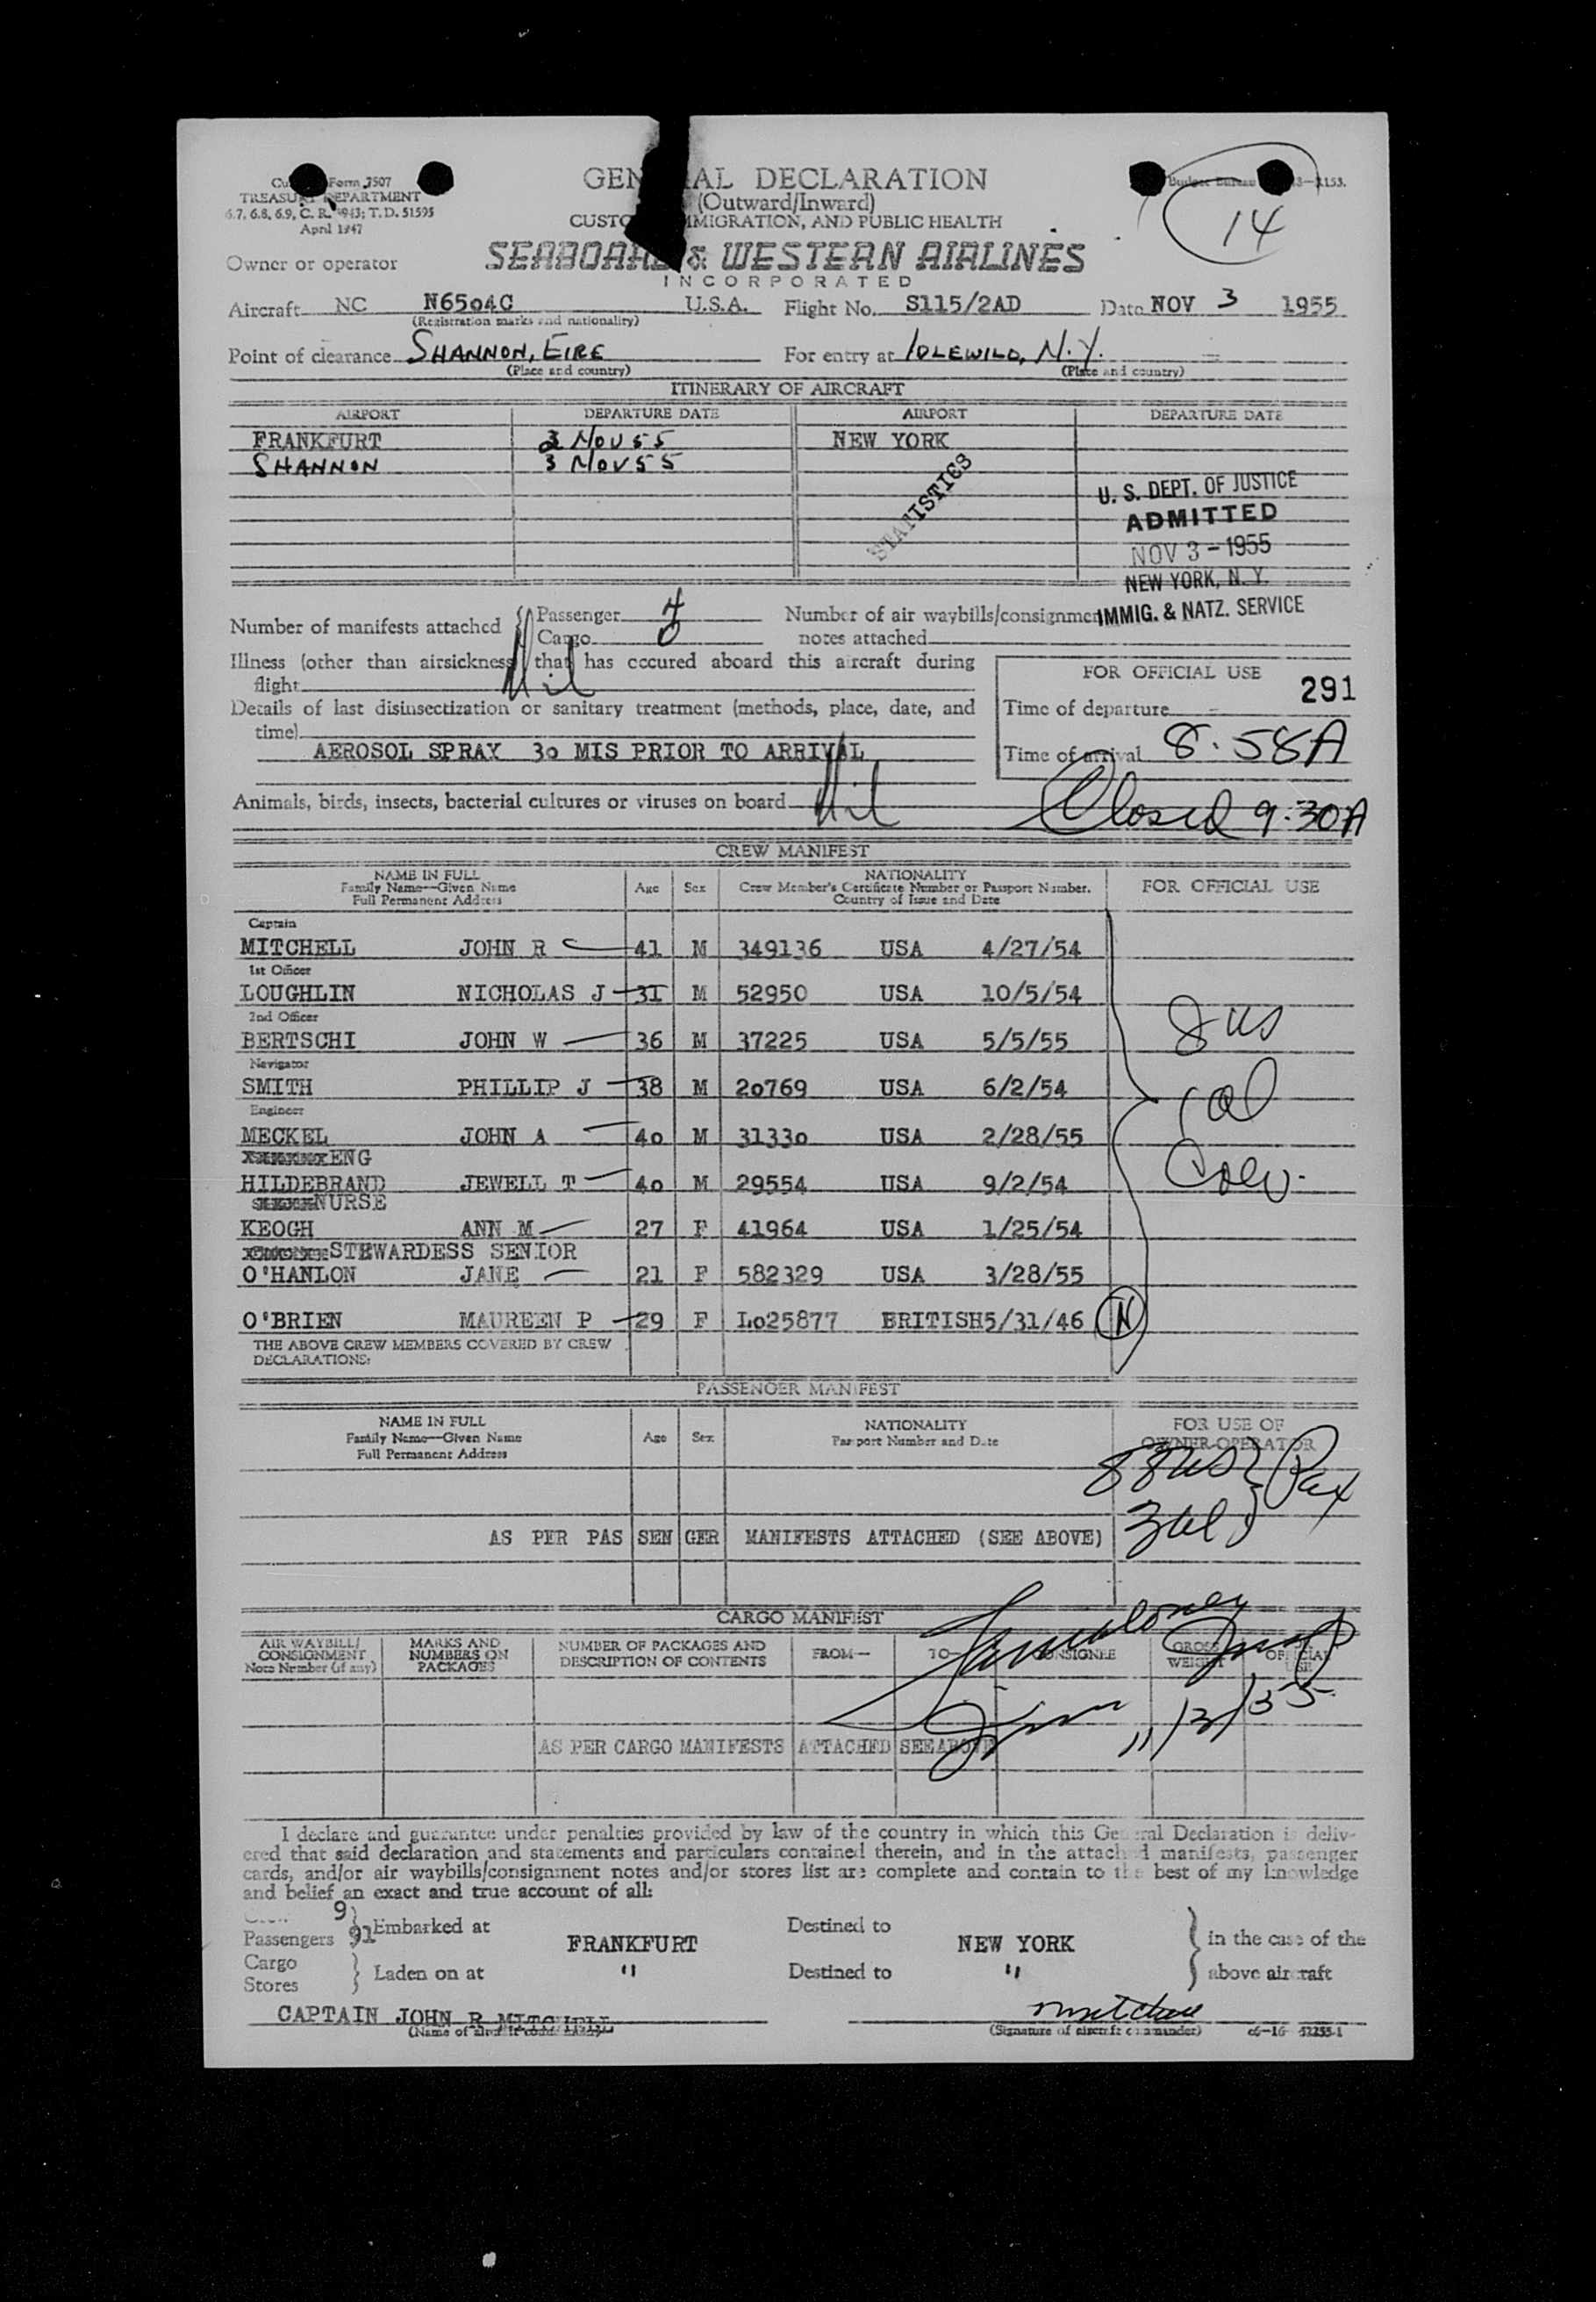 Form 7507
TREASURY DEPARTMENT
6.7, 6.8, 6.9, C. R. 4943; T. D. 51595
April 1947
GENERAL DECLARATION
(Outward/Inward)
CUSTOMS, IMMIGRATION, AND PUBLIC HEALTH
14
Owner or operator SEABOARD & WESTERN AIRLINES
INCORPORATED
Aircraft NC N6504C U.S.A. Flight No. S115/2AD Date NOV 3 1955
(Registration marks and nationality)
Point of clearance SHANNON, EIRE For entry at IDLEWILD, N.Y.
(Place and country) (Place and country)
ITINERARY OF AIRCRAFT
AIRPORT DEPARTURE DATE AIRPORT DEPARTURE DATE
FRANKFURT 2 NOV 55 NEW YORK
SHANNON 3 NOV 55
STATISTICS
U. S. DEPT. OF JUSTICE
ADMITTED
NOV 3 - 1955
NEW YORK, N. Y.
IMMIG. & NATZ. SERVICE
Number of manifests attached { Passenger 4
Cargo 0
Number of air waybills/consignment
notes attached
Illness (other than airsickness) that has occured aboard this aircraft during
flight Nil
FOR OFFICIAL USE
291
Details of last disinsectization or sanitary treatment (methods, place, date, and
time)
AEROSOL SPRAY 30 MIS PRIOR TO ARRIVAL
Time of departure
Time of arrival 8.58A
Animals, birds, insects, bacterial cultures or viruses on board Nil
Closed 9.30A
CREW MANIFEST
NAME IN FULL
Family Name—Given Name
Full Permanent Address
Age Sex
NATIONALITY
Crew Member's Certificate Number or Passport Number.
Country of Issue and Date
FOR OFFICIAL USE
Captain
MITCHELL JOHN R 41 M 349136 USA 4/27/54
1st Officer
LOUGHLIN NICHOLAS J 31 M 52950 USA 10/5/54
2nd Officer
BERTSCHI JOHN W 36 M 37225 USA 5/5/55
Navigator
SMITH PHILLIP J 38 M 20769 USA 6/2/54
Engineer
MECKEL JOHN A 40 M 31330 USA 2/28/55
ENG
HILDEBRAND JEWELL T 40 M 29554 USA 9/2/54
NURSE
KEOGH ANN M 27 F 41964 USA 1/25/54
STEWARDESS SENIOR
O'HANLON JANE 21 F 582329 USA 3/28/55
O'BRIEN MAUREEN P 29 F L025877 BRITISH 5/31/46 N
8 us
1 al
Crew
THE ABOVE CREW MEMBERS COVERED BY CREW
DECLARATIONS:
PASSENGER MANIFEST
NAME IN FULL
Family Name—Given Name
Full Permanent Address
Age Sex
NATIONALITY
Passport Number and Date
FOR USE OF
OWNER-OPERATOR
88 us } Pax
3 al
AS PER PASSENGER MANIFESTS ATTACHED (SEE ABOVE)
CARGO MANIFEST
AIR WAYBILL/
CONSIGNMENT
Note Number (if any)
MARKS AND
NUMBERS ON
PACKAGES
NUMBER OF PACKAGES AND
DESCRIPTION OF CONTENTS
FROM— TO— CONSIGNEE
GROSS
WEIGHT
OFFICIAL
USE
11/3/55
AS PER CARGO MANIFESTS ATTACHED SEE ABOVE
I declare and guarantee under penalties provided by law of the country in which this General Declaration is deliv-
ered that said declaration and statements and particulars contained therein, and in the attached manifests, passenger
cards, and/or air waybills/consignment notes and/or stores list are complete and contain to the best of my knowledge
and belief an exact and true account of all:
Crew 9
Passengers 91 } Embarked at FRANKFURT Destined to NEW YORK } in the case of the
Cargo
Stores } Laden on at " Destined to " above aircraft
CAPTAIN JOHN R MITCHELL
(Name of aircraft commander)
(Signature of aircraft commander)